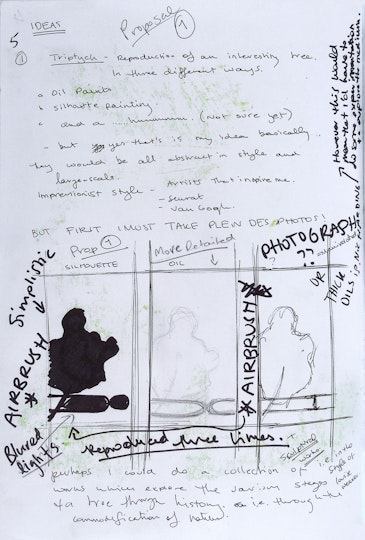 IDEAS
Proposal 1
5
1 Triptych - Reproduction of an interesting tree.
In three different ways.
a Oil Paints
b silhoutte painting
c and a ... hummmm. (Not sure yet)
- but yes that's is my idea basically.
they would be all abstract in style and
large-scale.
Impressionist style - Artists that inspire me.
- Seurat
- Van Gogh.
However this would
mean that I'd have to
do some experimentation
BUT FIRST I MUST TAKE PLEIN DES PHOTOS!
Prop 1
SILHOUETTE
More Detailed
OIL
PHOTOGRAPH
??
OR
THICK
OILS
Simplistic
* AIRBRUSH
* AIRBRUSH
Blured
lights
Reproduced three times.
perhaps I could do a collection of
works which explore the various stages
of a tree through history. i.e. through the
commodification of nature.
i.e. in the
style of